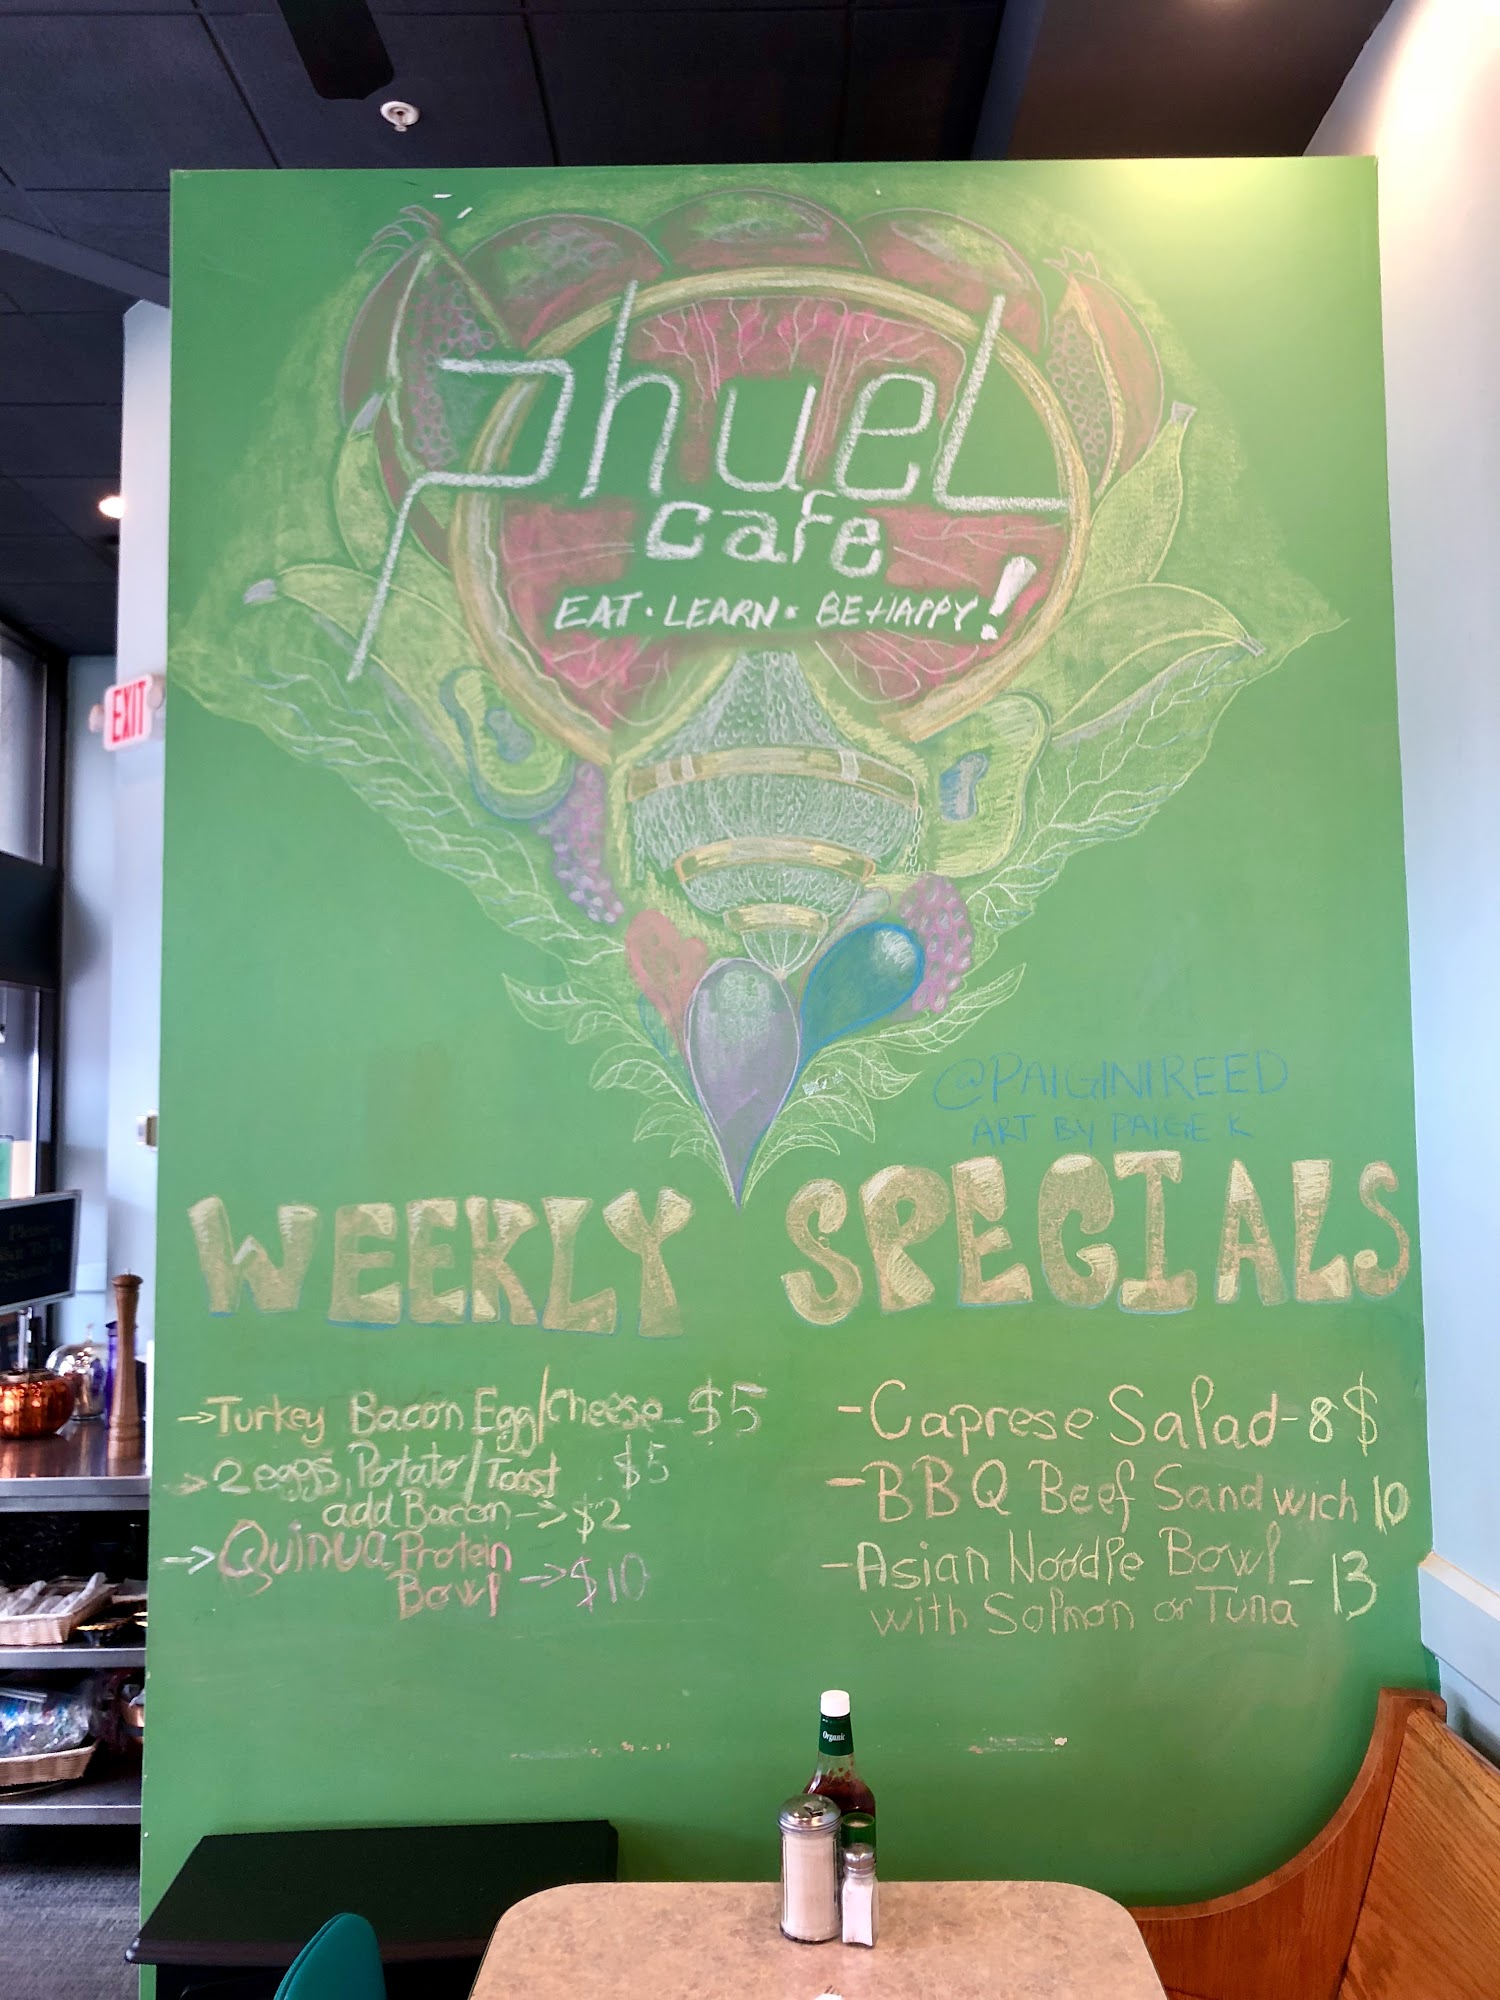 phuel
cafe
EAT · LEARN · BE HAPPY!
EXIT
@PAIGINIREED
ART BY PAIGE K
WEEKLY SPECIALS
→Turkey Bacon Egg/cheese - $5
→2 eggs, Potato/Toast $5
add Bacon -> $2
→Quinua Protein
Bowl -> $10
-Caprese Salad - 8$
-BBQ Beef Sandwich 10
-Asian Noodle Bowl
with Salmon or Tuna - 13
Please
Wait To Be
Seated
Organic